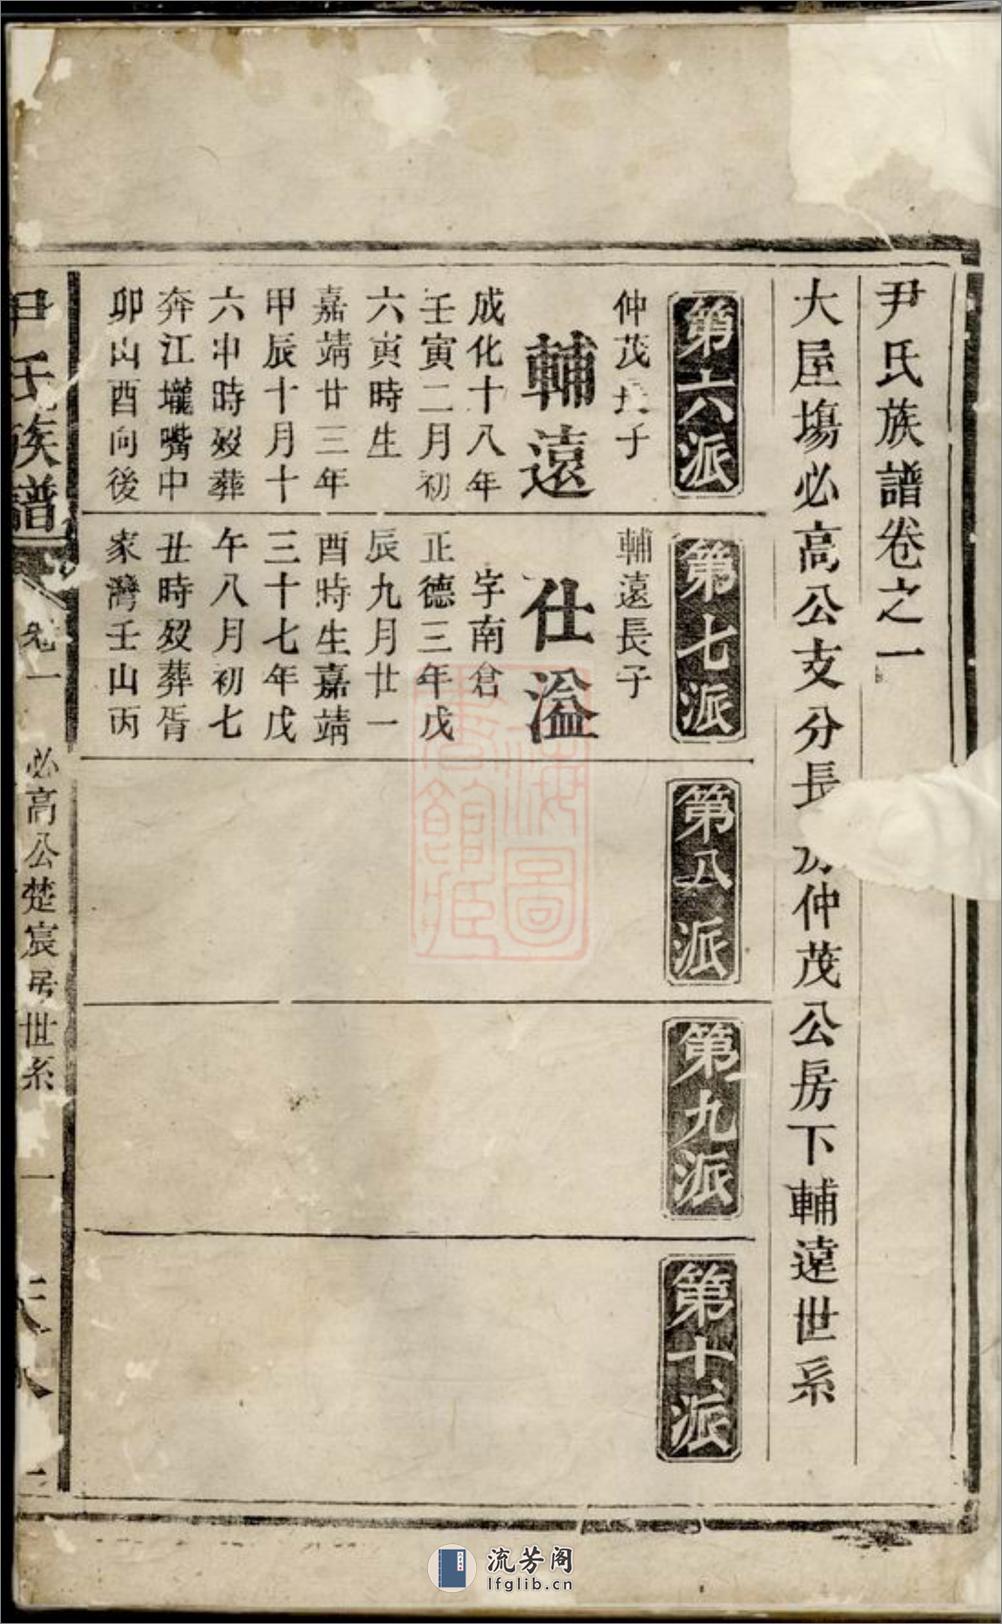 尹氏族譜卷之一
大屋塲必高公支分長
仲茂公房下輔遠世系
第六派
仲茂長子
輔遠
成化十八年
壬寅二月初
六寅時生
嘉靖廿三年
甲辰十月十
六申時歿葬
奔江壠嘴中
卯山酉向後
第七派
輔遠長子
仕溢
字南倉
正德三年戊
辰九月廿一
酉時生嘉靖
三十七年戊
午八月初七
丑時歿葬胥
家灣壬山丙
第八派
第九派
第十派
尹氏族譜
卷一
必高公楚宸房世系
一
流芳阁
lfglib.cn